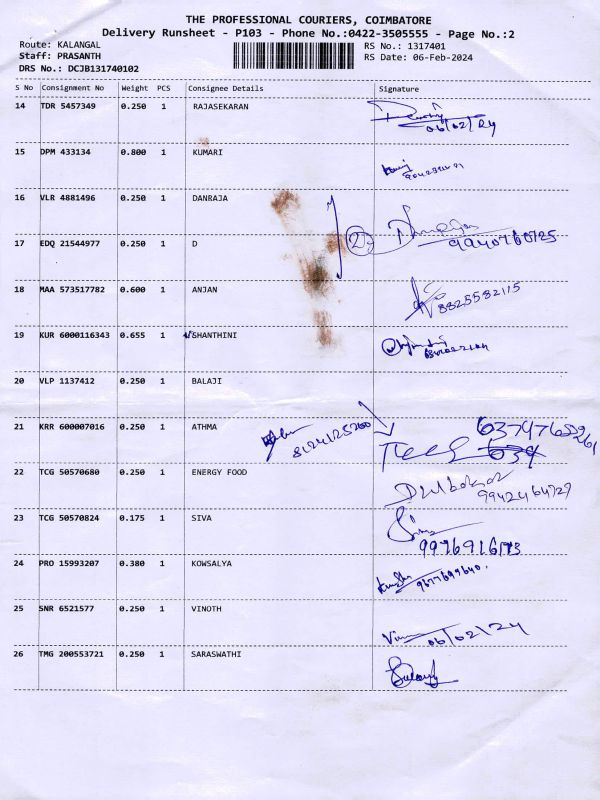 THE PROFESSIONAL COURIERS, COIMBATORE
Delivery Runsheet - P103 - Phone No.:0422-3505555 - Page No.:2
Route: KALANGAL RS No.: 1317401
Staff: PRASANTH RS Date: 06-Feb-2024
DRS No.: DCJB131740102
S No Consignment No Weight PCS Consignee Details Signature
14 TDR 5457349 0.250 1 RAJASEKARAN
06/02/24
15 DPM 433134 0.800 1 KUMARI
16 VLR 4881496 0.250 1 DANRAJA
17 EDQ 21544977 0.250 1 D 2 9940760725
18 MAA 573517782 0.600 1 ANJAN 8825582115
19 KUR 6000116343 0.655 1 SHANTHINI
20 VLP 1137412 0.250 1 BALAJI
21 KRR 600007016 0.250 1 ATHMA 8124125260
22 TCG 50570680 0.250 1 ENERGY FOOD
9942464729
23 TCG 50570824 0.175 1 SIVA
9976916173
24 PRO 15993207 0.380 1 KOWSALYA 9677699640.
25 SNR 6521577 0.250 1 VINOTH
06/02/24
26 TMG 200553721 0.250 1 SARASWATHI